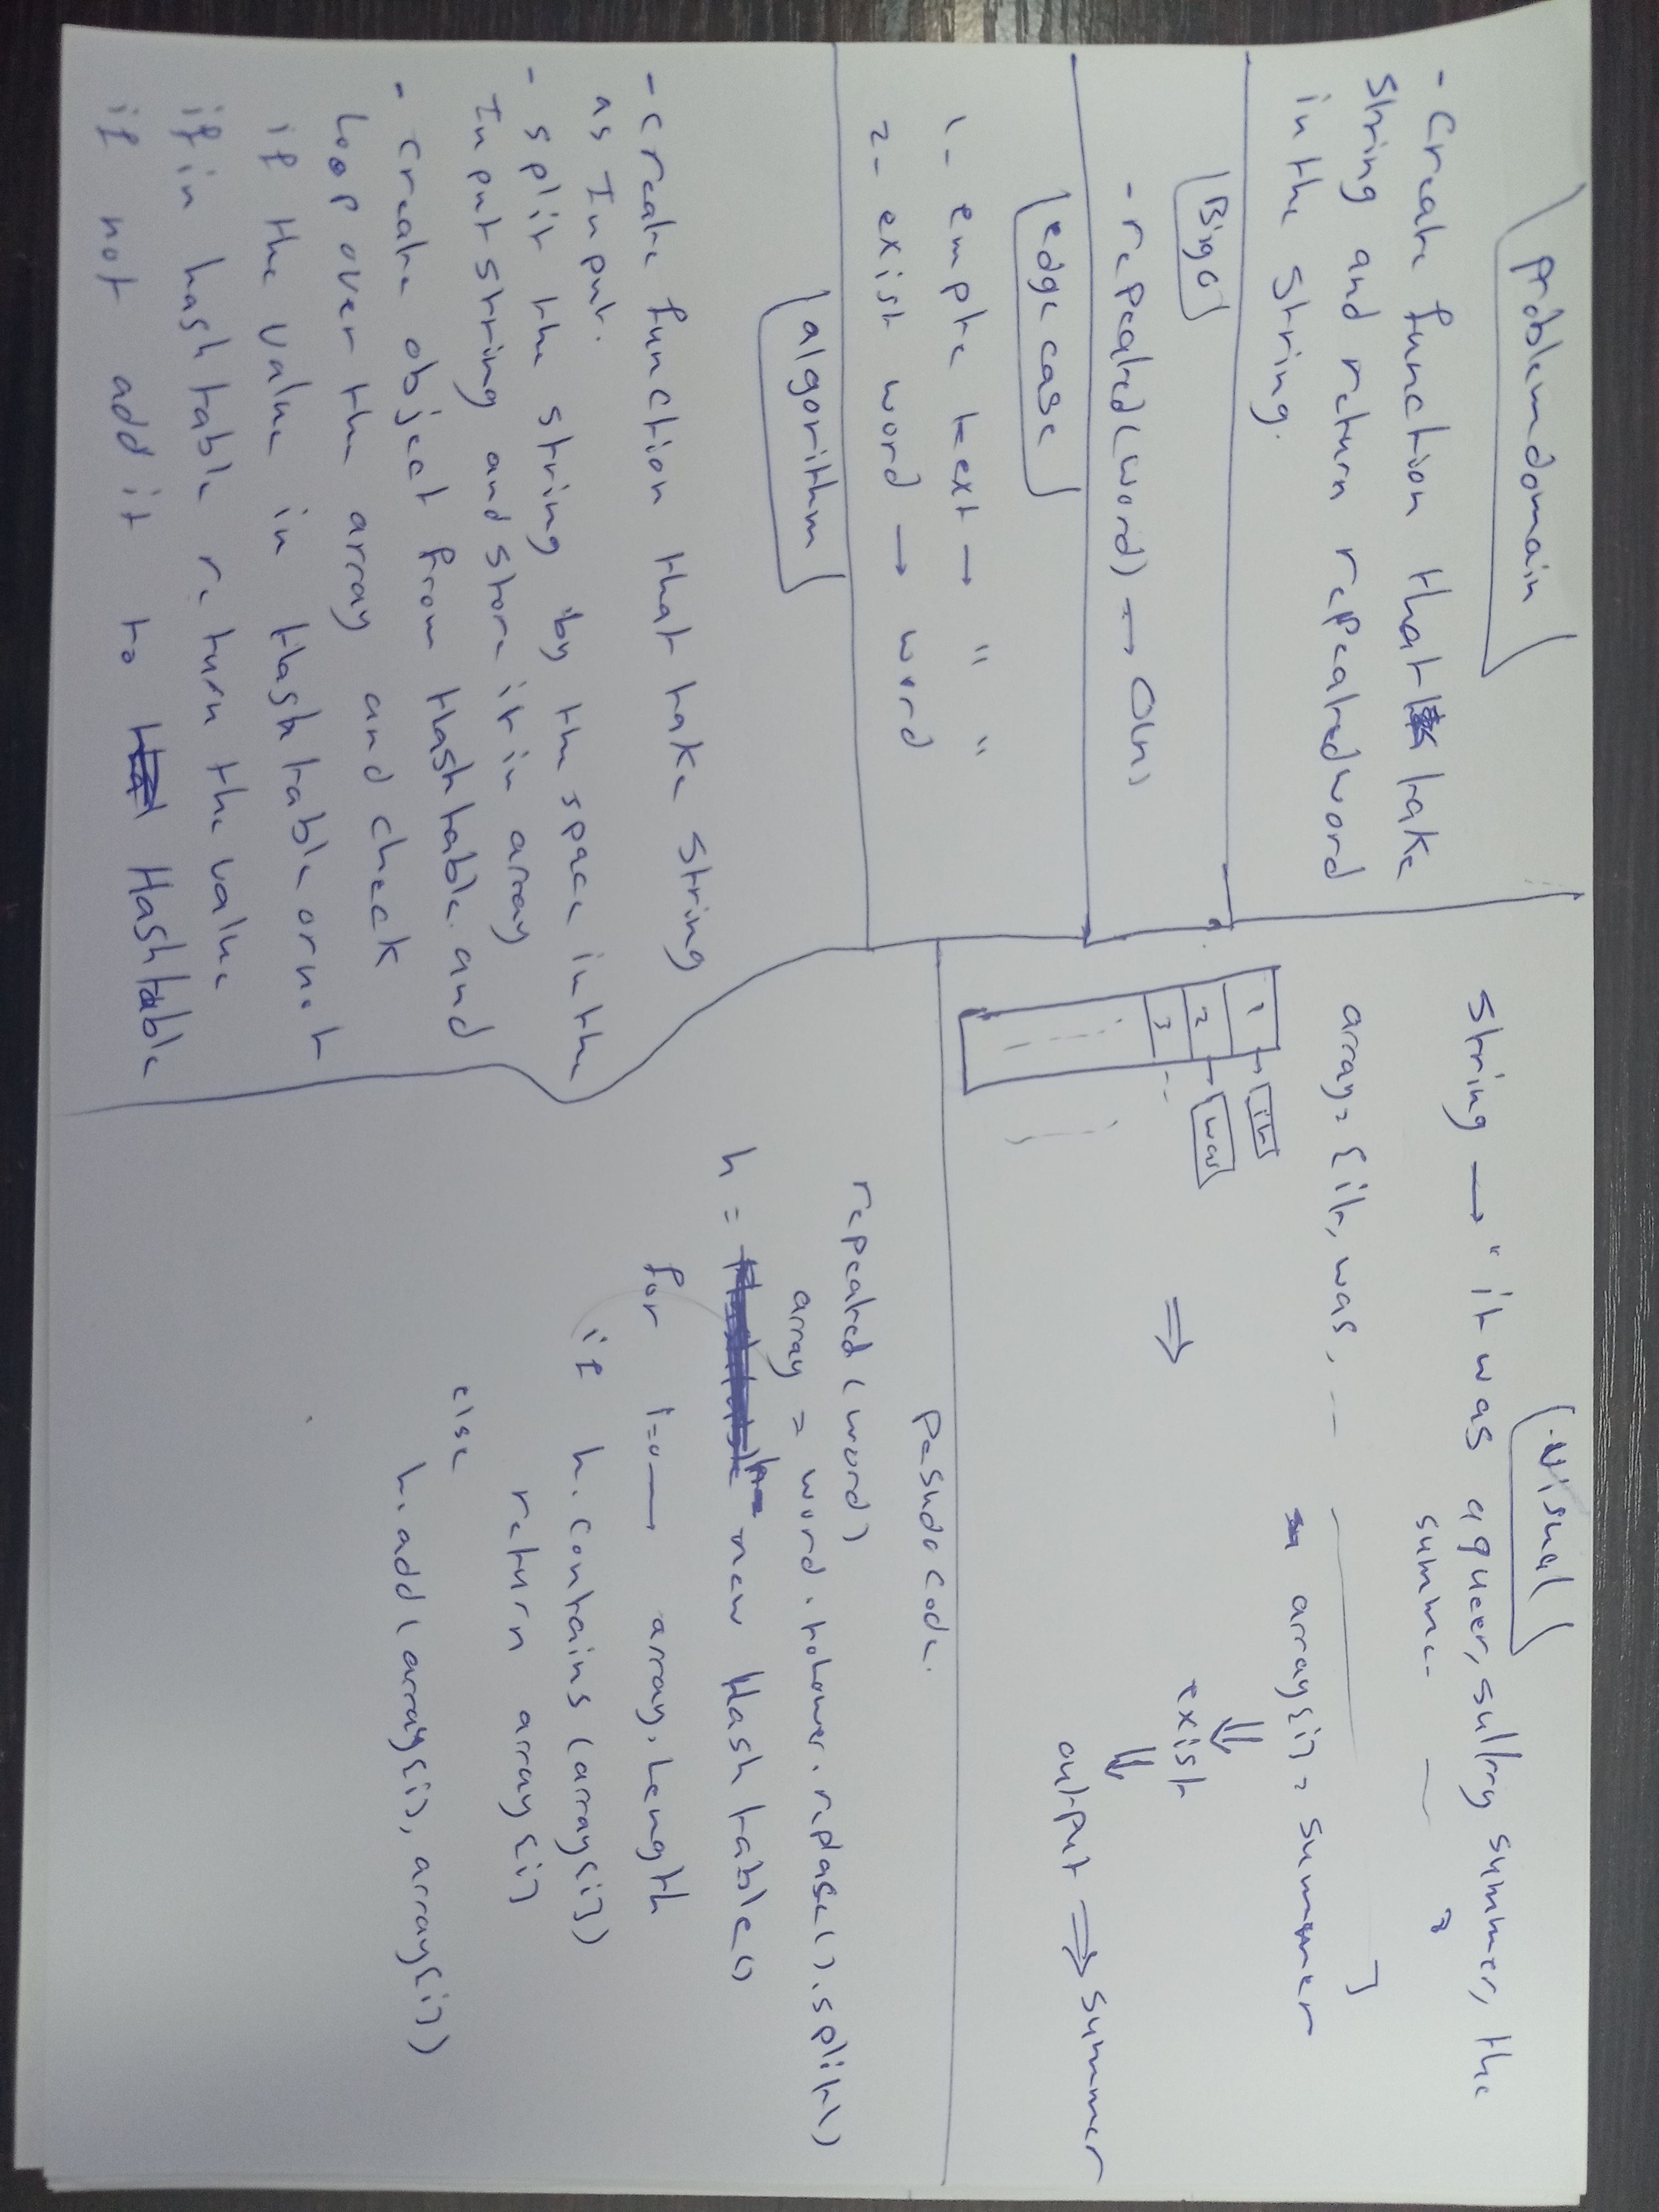 problem domain
- Create function that take
string and return repeated word
in the string.
Big O
- repeated(word) → O(n)
edge case
1- empte text → " "
2- exist word → word
algorithm
- create function that take string
as Input.
- split the string by the space in the
Input string and store it in array
- create object from Hashtable and
Loop over the array and check
if the value in Hashtable or not
if in hashtable return the value
if not add it to Hashtable
visual
string → " it was a queer, sultry summer, the
summe-
array = [it, was, ---
]
array[i] = summer
1 → it
2 → was
3 --
⇒
exist
output ⇒ summer
Pesudo Code.
repeated (word)
array = word.toLower.replase().split()
h = new Hashtable()
for i=0 → array.Length
if h.contains (array[i])
return array[i]
else
h.add(array[i], array[i])